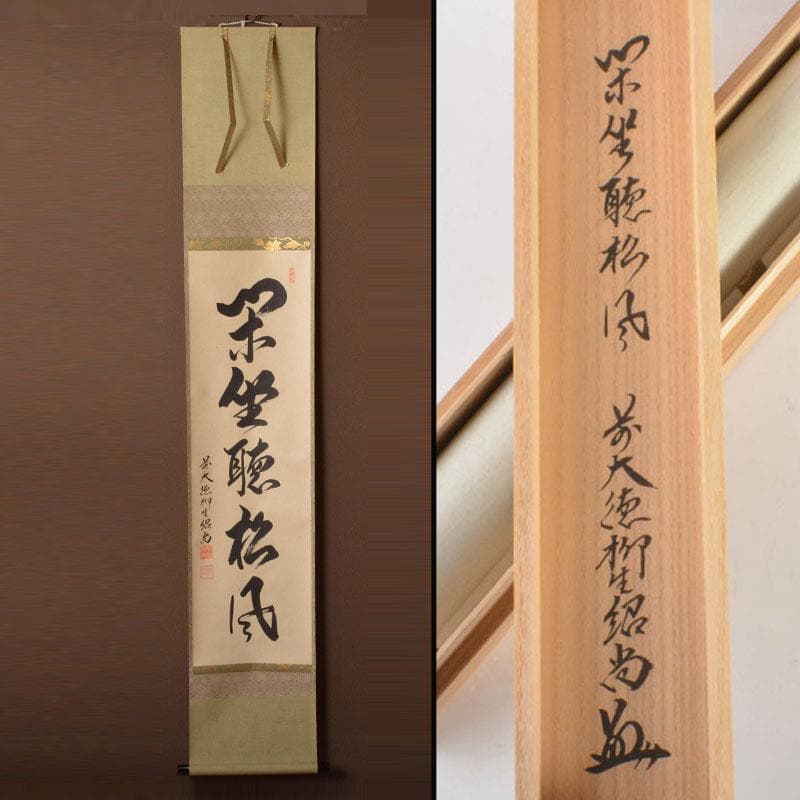 閑坐聴松風
前大徳柳生紹尚
閑坐聴松風　前大徳柳生紹尚